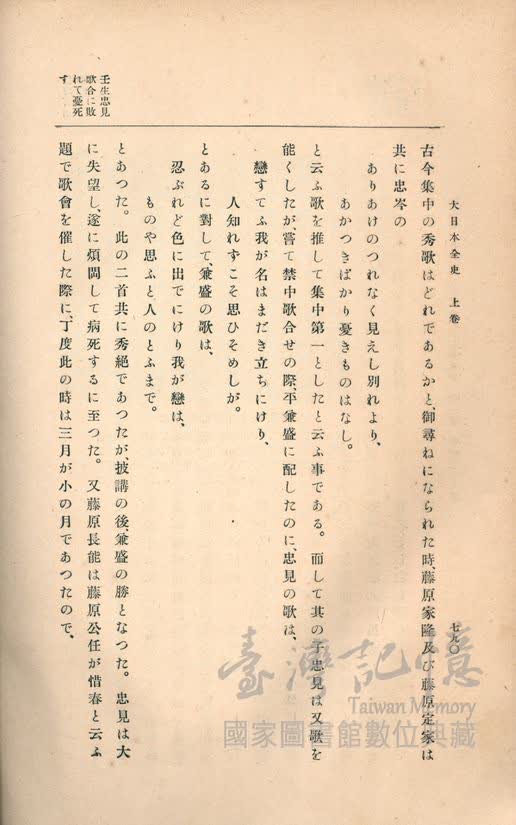 大日本全史　上卷
七九〇
壬生忠見
歌合に敗
れて憂死
す
古今集中の秀歌はどれであるかと、御尋ねになられた時、藤原家隆及び藤原定家は
共に忠岑の
ありあけのつれなく見えし別れより、
あかつきばかり憂きものはなし。
と云ふ歌を推して集中第一としたと云ふ事である。而して其の子忠見は又歌を
能くしたが、嘗て禁中歌合せの際、平兼盛に配したのに、忠見の歌は、
戀すてふ我が名はまだき立ちにけり、
人知れずこそ思ひそめしが。
とあるに對して、兼盛の歌は、
忍ぶれど色に出でにけり我が戀は、
ものや思ふと人のとふまで。
とあつた。此の二首共に秀絶であつたが、披講の後、兼盛の勝となつた。忠見は大
に失望し、遂に煩悶して病死するに至つた。又藤原長能は藤原公任が惜春と云ふ
題で歌會を催した際に、丁度此の時は三月が小の月であつたので、
臺灣記憶
Taiwan Memory
國家圖書館數位典藏